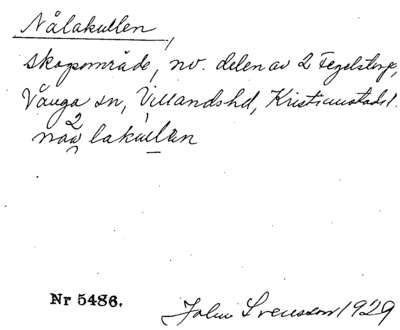 Nålakullen,
skogsområde, nv. delen av 2 Tegelstorp,
Vånga sn, Villands hd, Kristianstads l.
2
nåa lakullen
Nr 5486.
John Svensson 1929